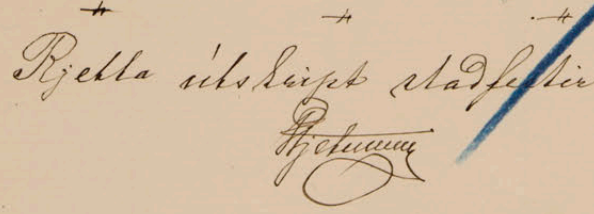 Rjetta útskript stadfestir